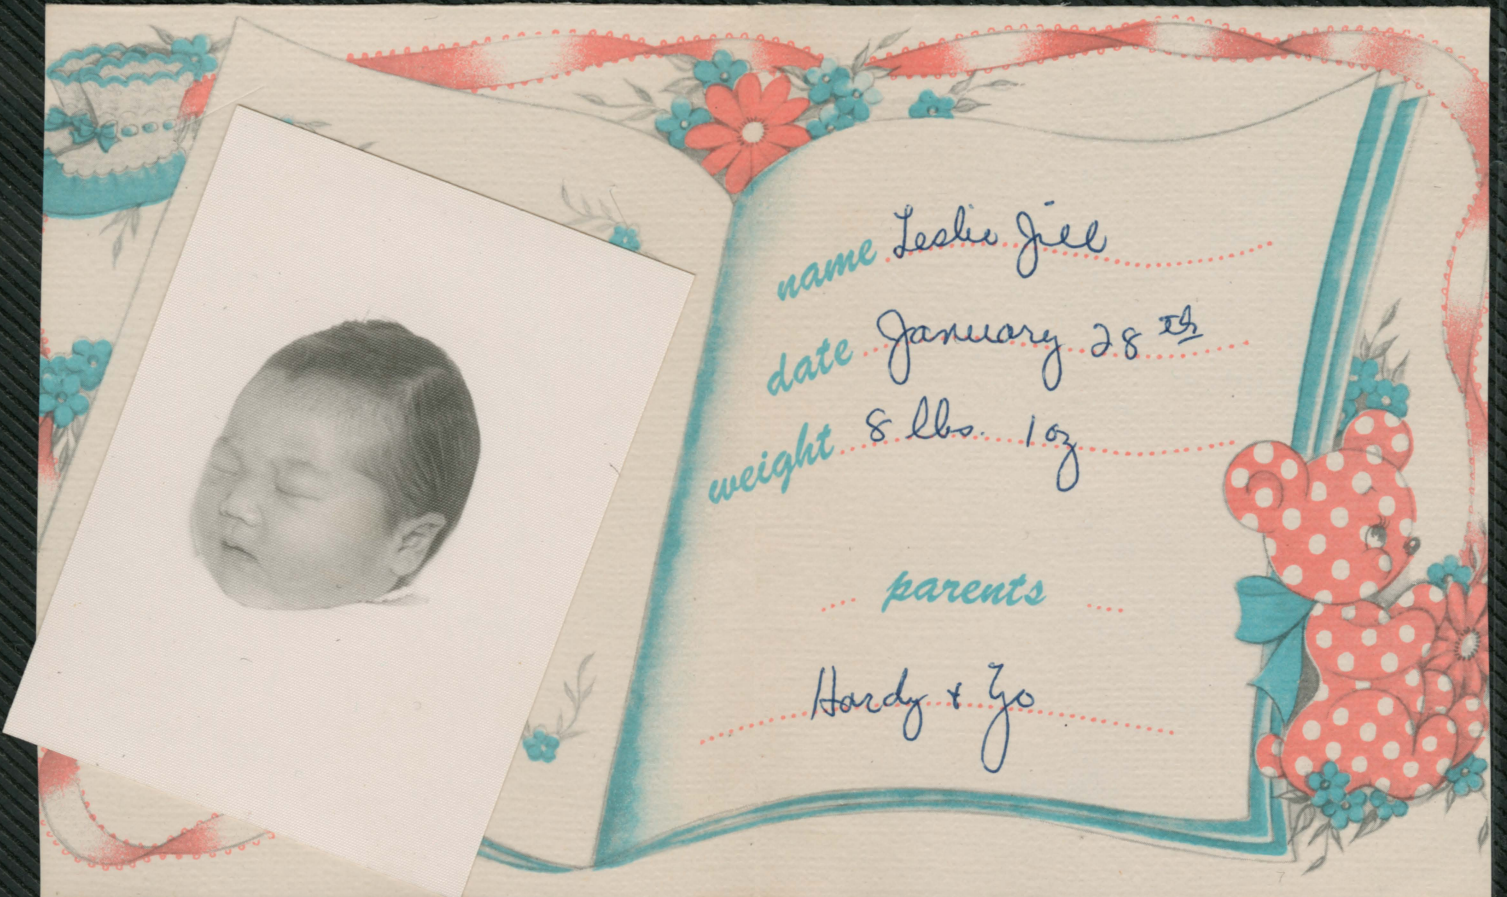 name Leslie Jill
date January 28th
weight 8 lbs. 1 oz
parents
Hardy + Yo